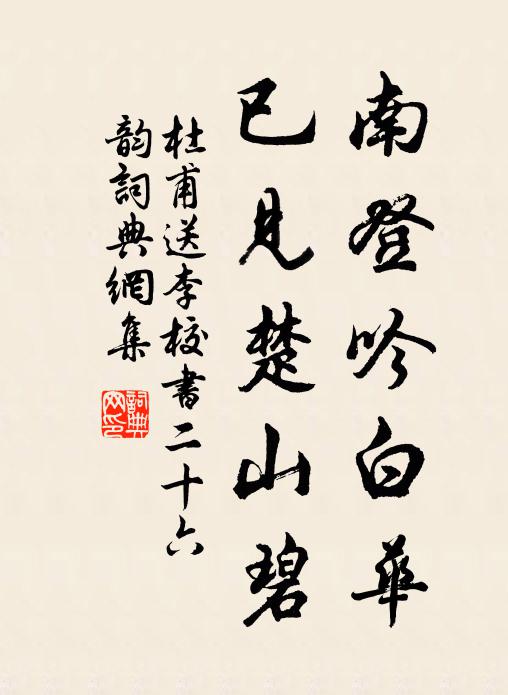 南登吟白華
已見楚山碧
杜甫送李校書二十六
韵詞典網集
詞典
网印